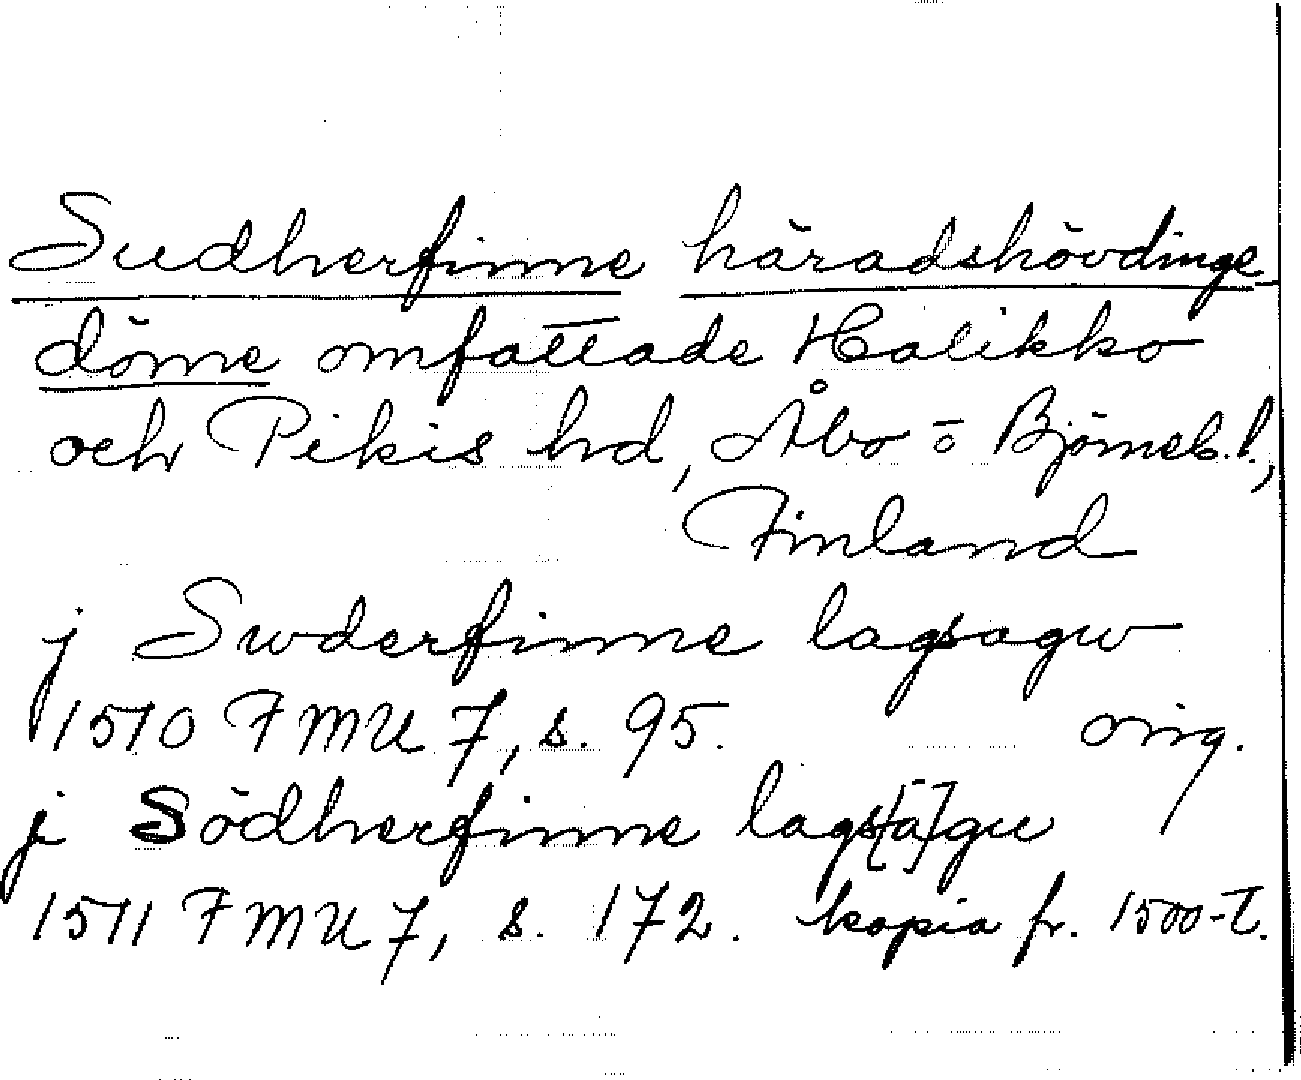 Sudherfinne häradshövdinge-
döme omfattade Halikko
och Pikis hd, Åbo o Björneb. l.,
Finland
j Swderfinne lagsagw
1510 FMU 7, s. 95. orig.
j Södherfinne lags[a]gu
1511 FMU 7, s. 172. kopia fr. 1500-t.